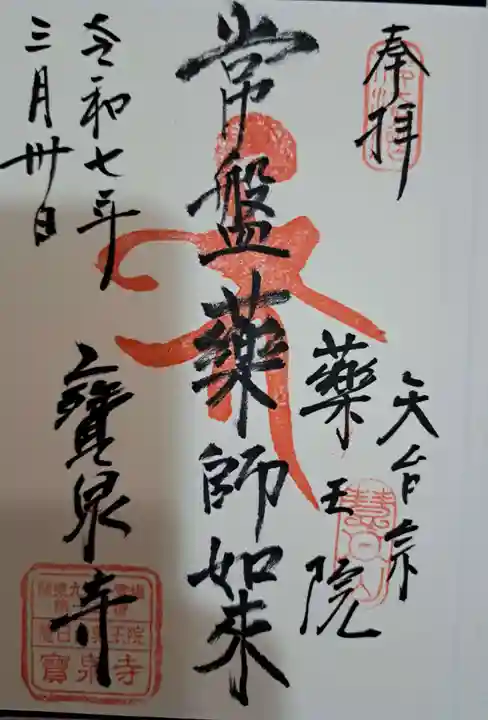 奉拝
天台宗
薬王院
常盤薬師如来
寶泉寺
令和七年
三月卅日
寶泉寺